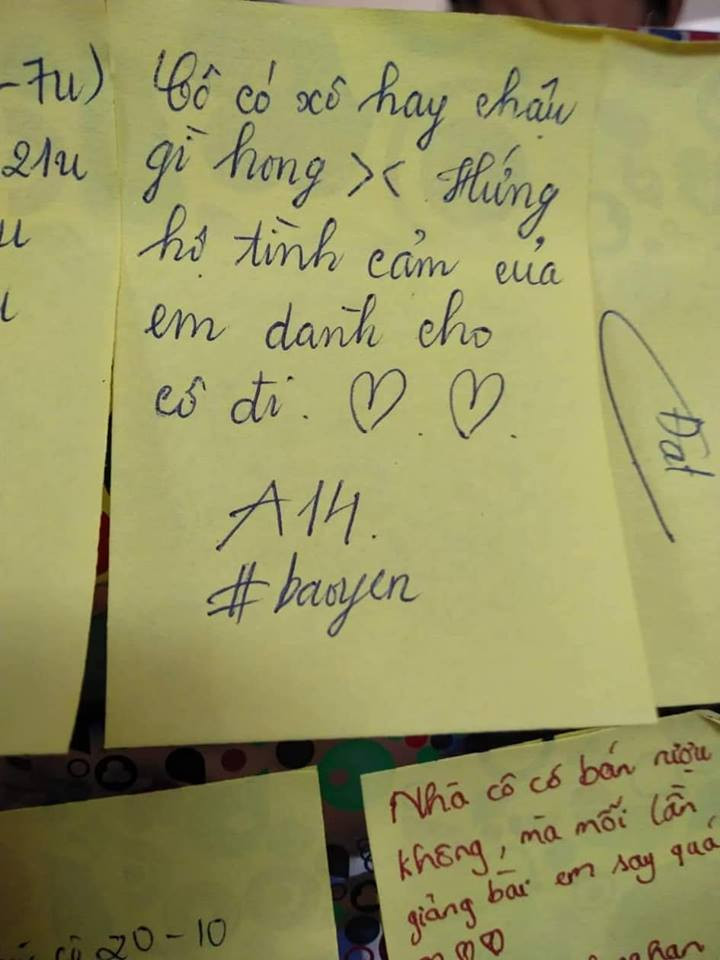 -7u)
21u
u
Cô có xô hay chậu
gì hong >< Hứng
hộ tình cảm của
em danh cho
cô đi. ♡. ♡.
A14.
#baoyen
Đạt
Nhà cô có bán rượu
không, mà mỗi lần
giảng bài em say quá
♡♡
cô 20-10